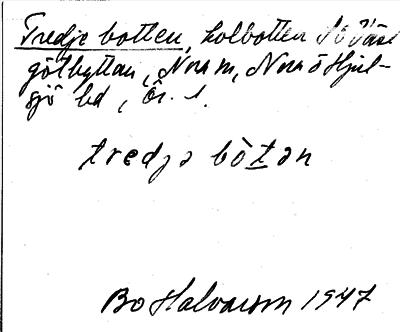 Tredje botten, kolbotten SÖ Väst
götbyttan, Nora, Nora o Hjul-
sjö bd, Ör. l.
tredjə bòtən
Bo Halvarson 1947